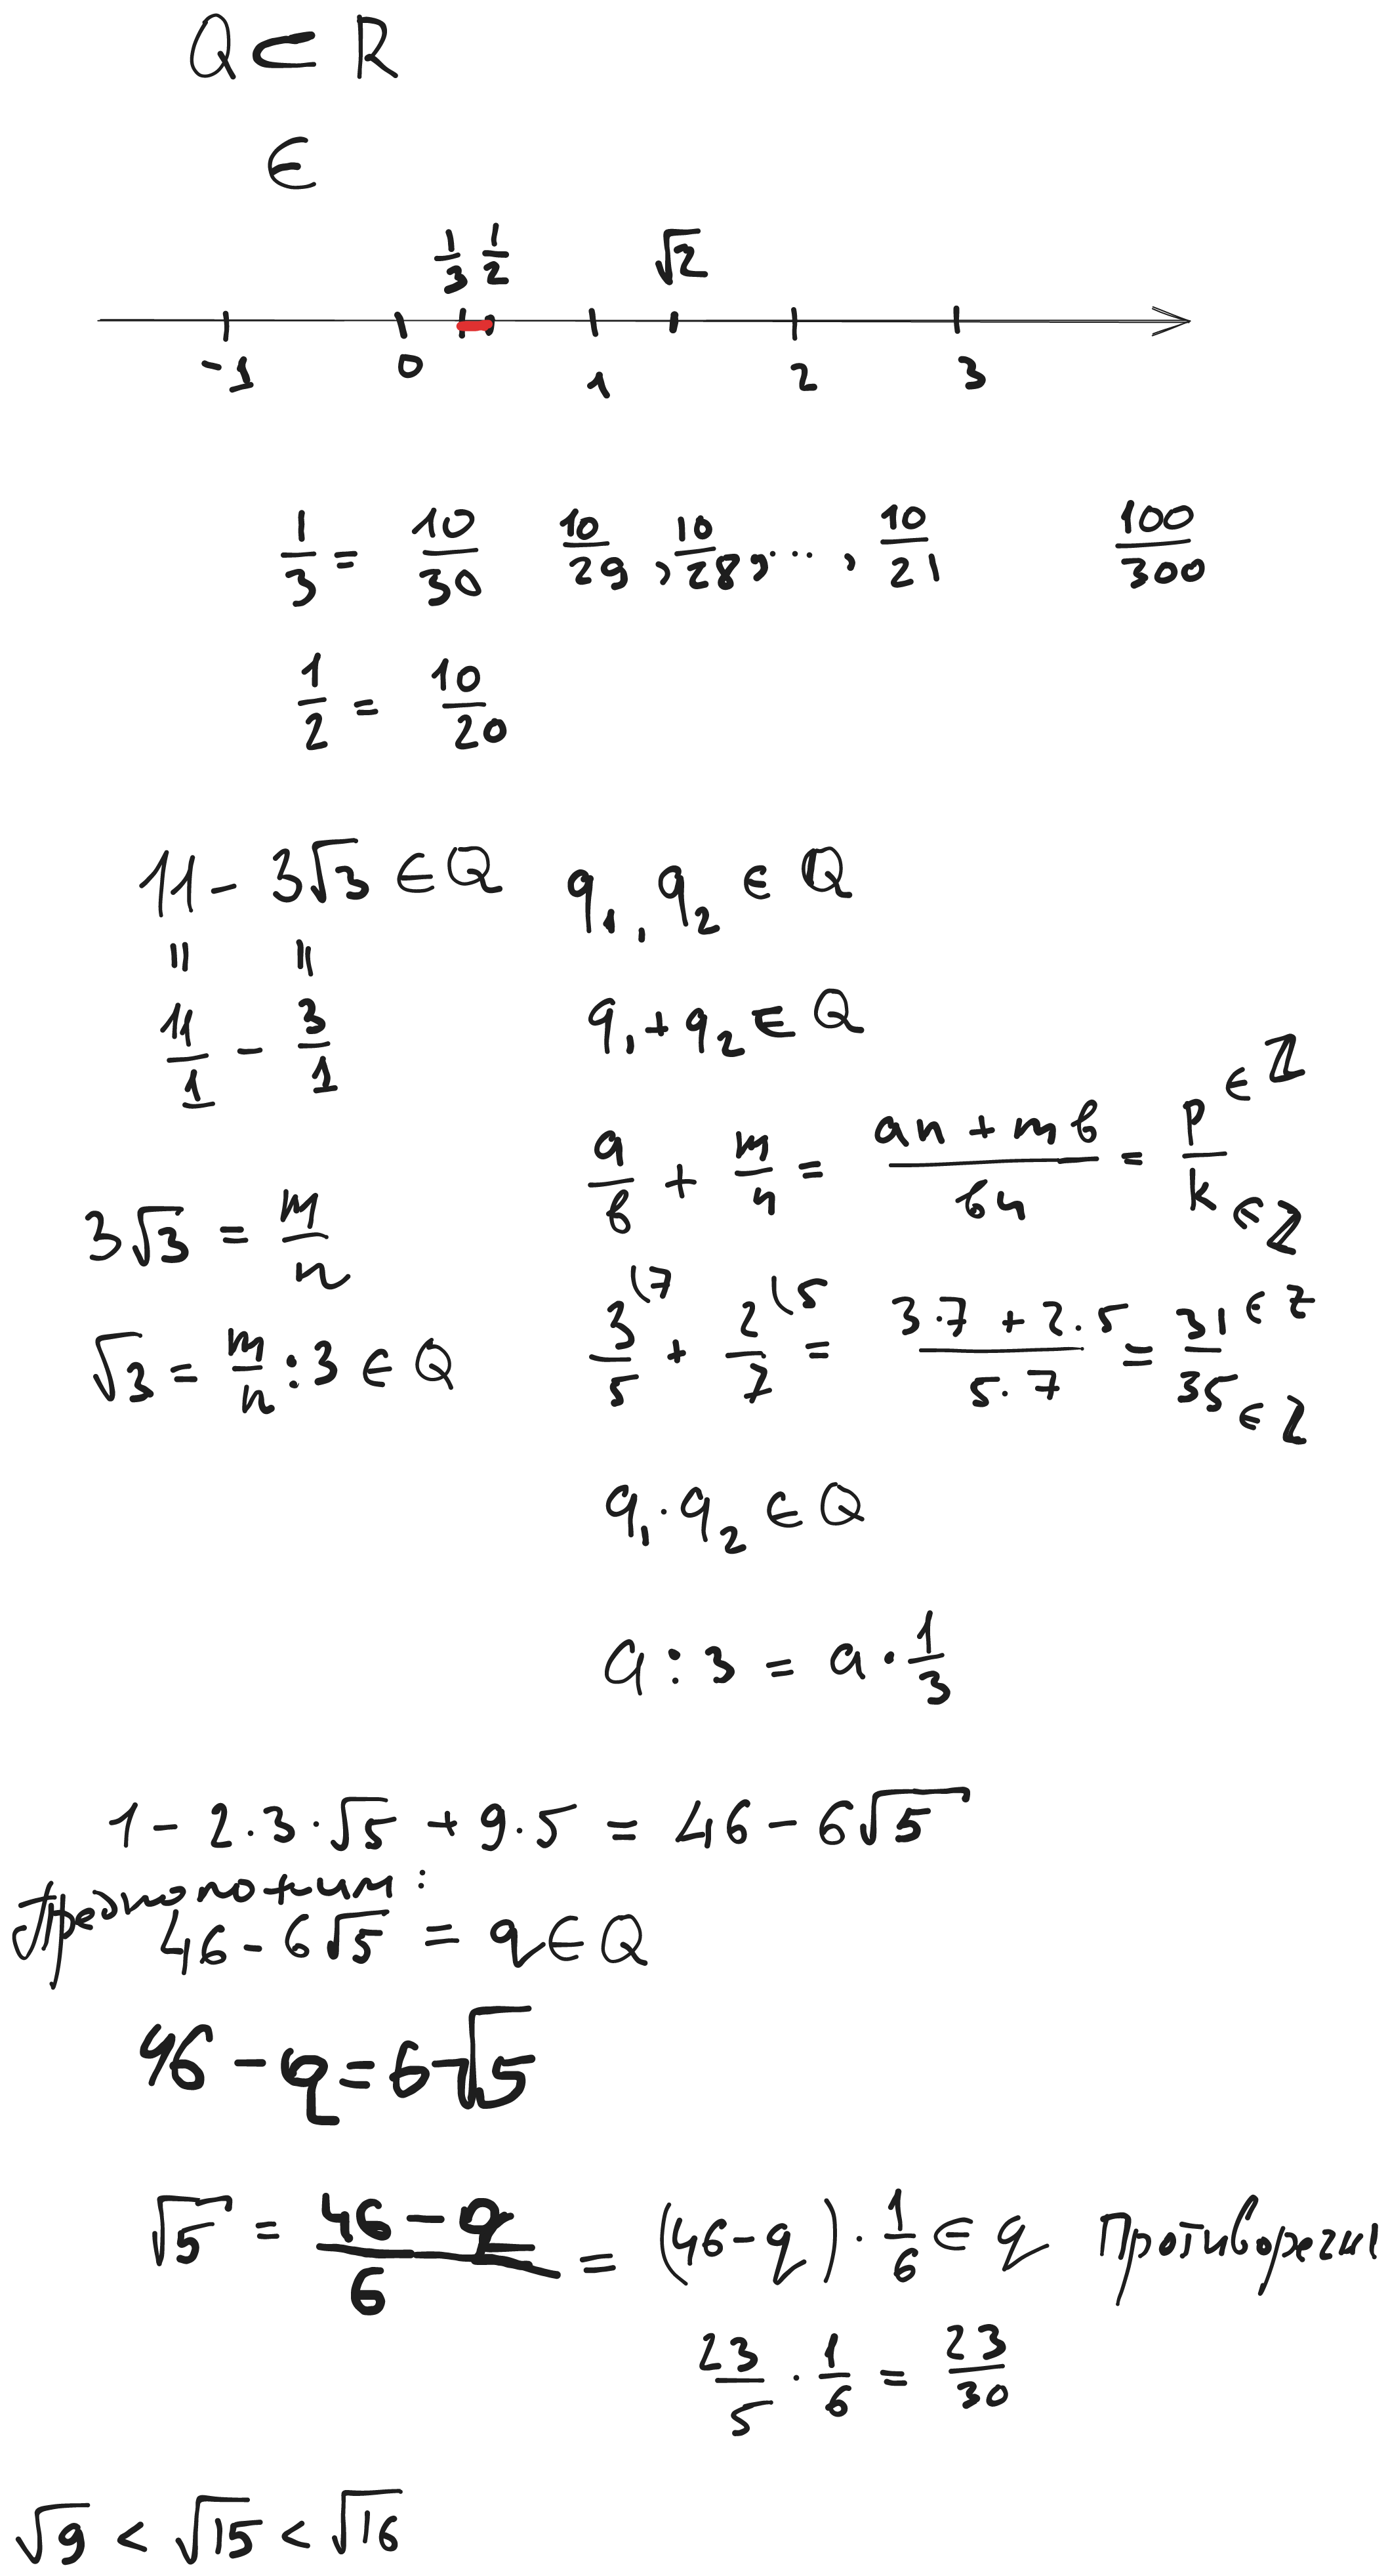 Q ⊂ R
∈
1/3 1/2 √2
-1 0 1 2 3
1/3 = 10/30 10/29 , 10/28 , ... , 10/21 100/300
1/2 = 10/20
11 - 3√3 ∈ Q q₁, q₂ ∈ Q
= =
11/1 - 3/1 q₁ + q₂ ∈ Q
a/b + m/n = (an + mb)/(bn) = p/k ∈ Z ∈ Z
3√3 = m/n
3/5 (7 + 2/7 (5 = (3·7 + 2·5)/(5·7) = 31/35 ∈ Z ∈ Z
√3 = m/n : 3 ∈ Q
q₁ · q₂ ∈ Q
a : 3 = a · 1/3
1 - 2·3·√5 + 9·5 = 46 - 6√5
Предположим:
46 - 6√5 = q ∈ Q
46 - q = 6√5
√5 = (46 - q)/6 = (46 - q) · 1/6 ∈ q
23/5 · 1/6 = 23/30
√9 < √15 < √16